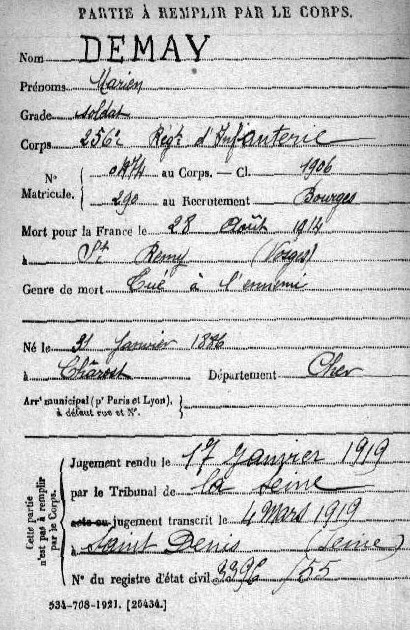 PARTIE À REMPLIR PAR LE CORPS.
Nom DEMAY
Prénoms Marien
Grade soldat
Corps 256e Régt d'Infanterie
N° Matricule. { au Corps. — Cl. 1906
290 au Recrutement Bourges
Mort pour la France le 28 Août 1914
à St Rémy (Vosges)
Genre de mort Tué à l'ennemi
Né le 21 Janvier
à Chârost Département Cher
Arrt municipal (pr Paris et Lyon),
à défaut rue et N°.
Cette partie
n'est pas à remplir
par le Corps.
Jugement rendu le 17 Janvier 1919
par le Tribunal de la Seine
acte ou jugement transcrit le 4 Mars 1919
à Saint Denis (Seine)
N° du registre d'état civil 3396 /55
534-708-1921. [26434.]